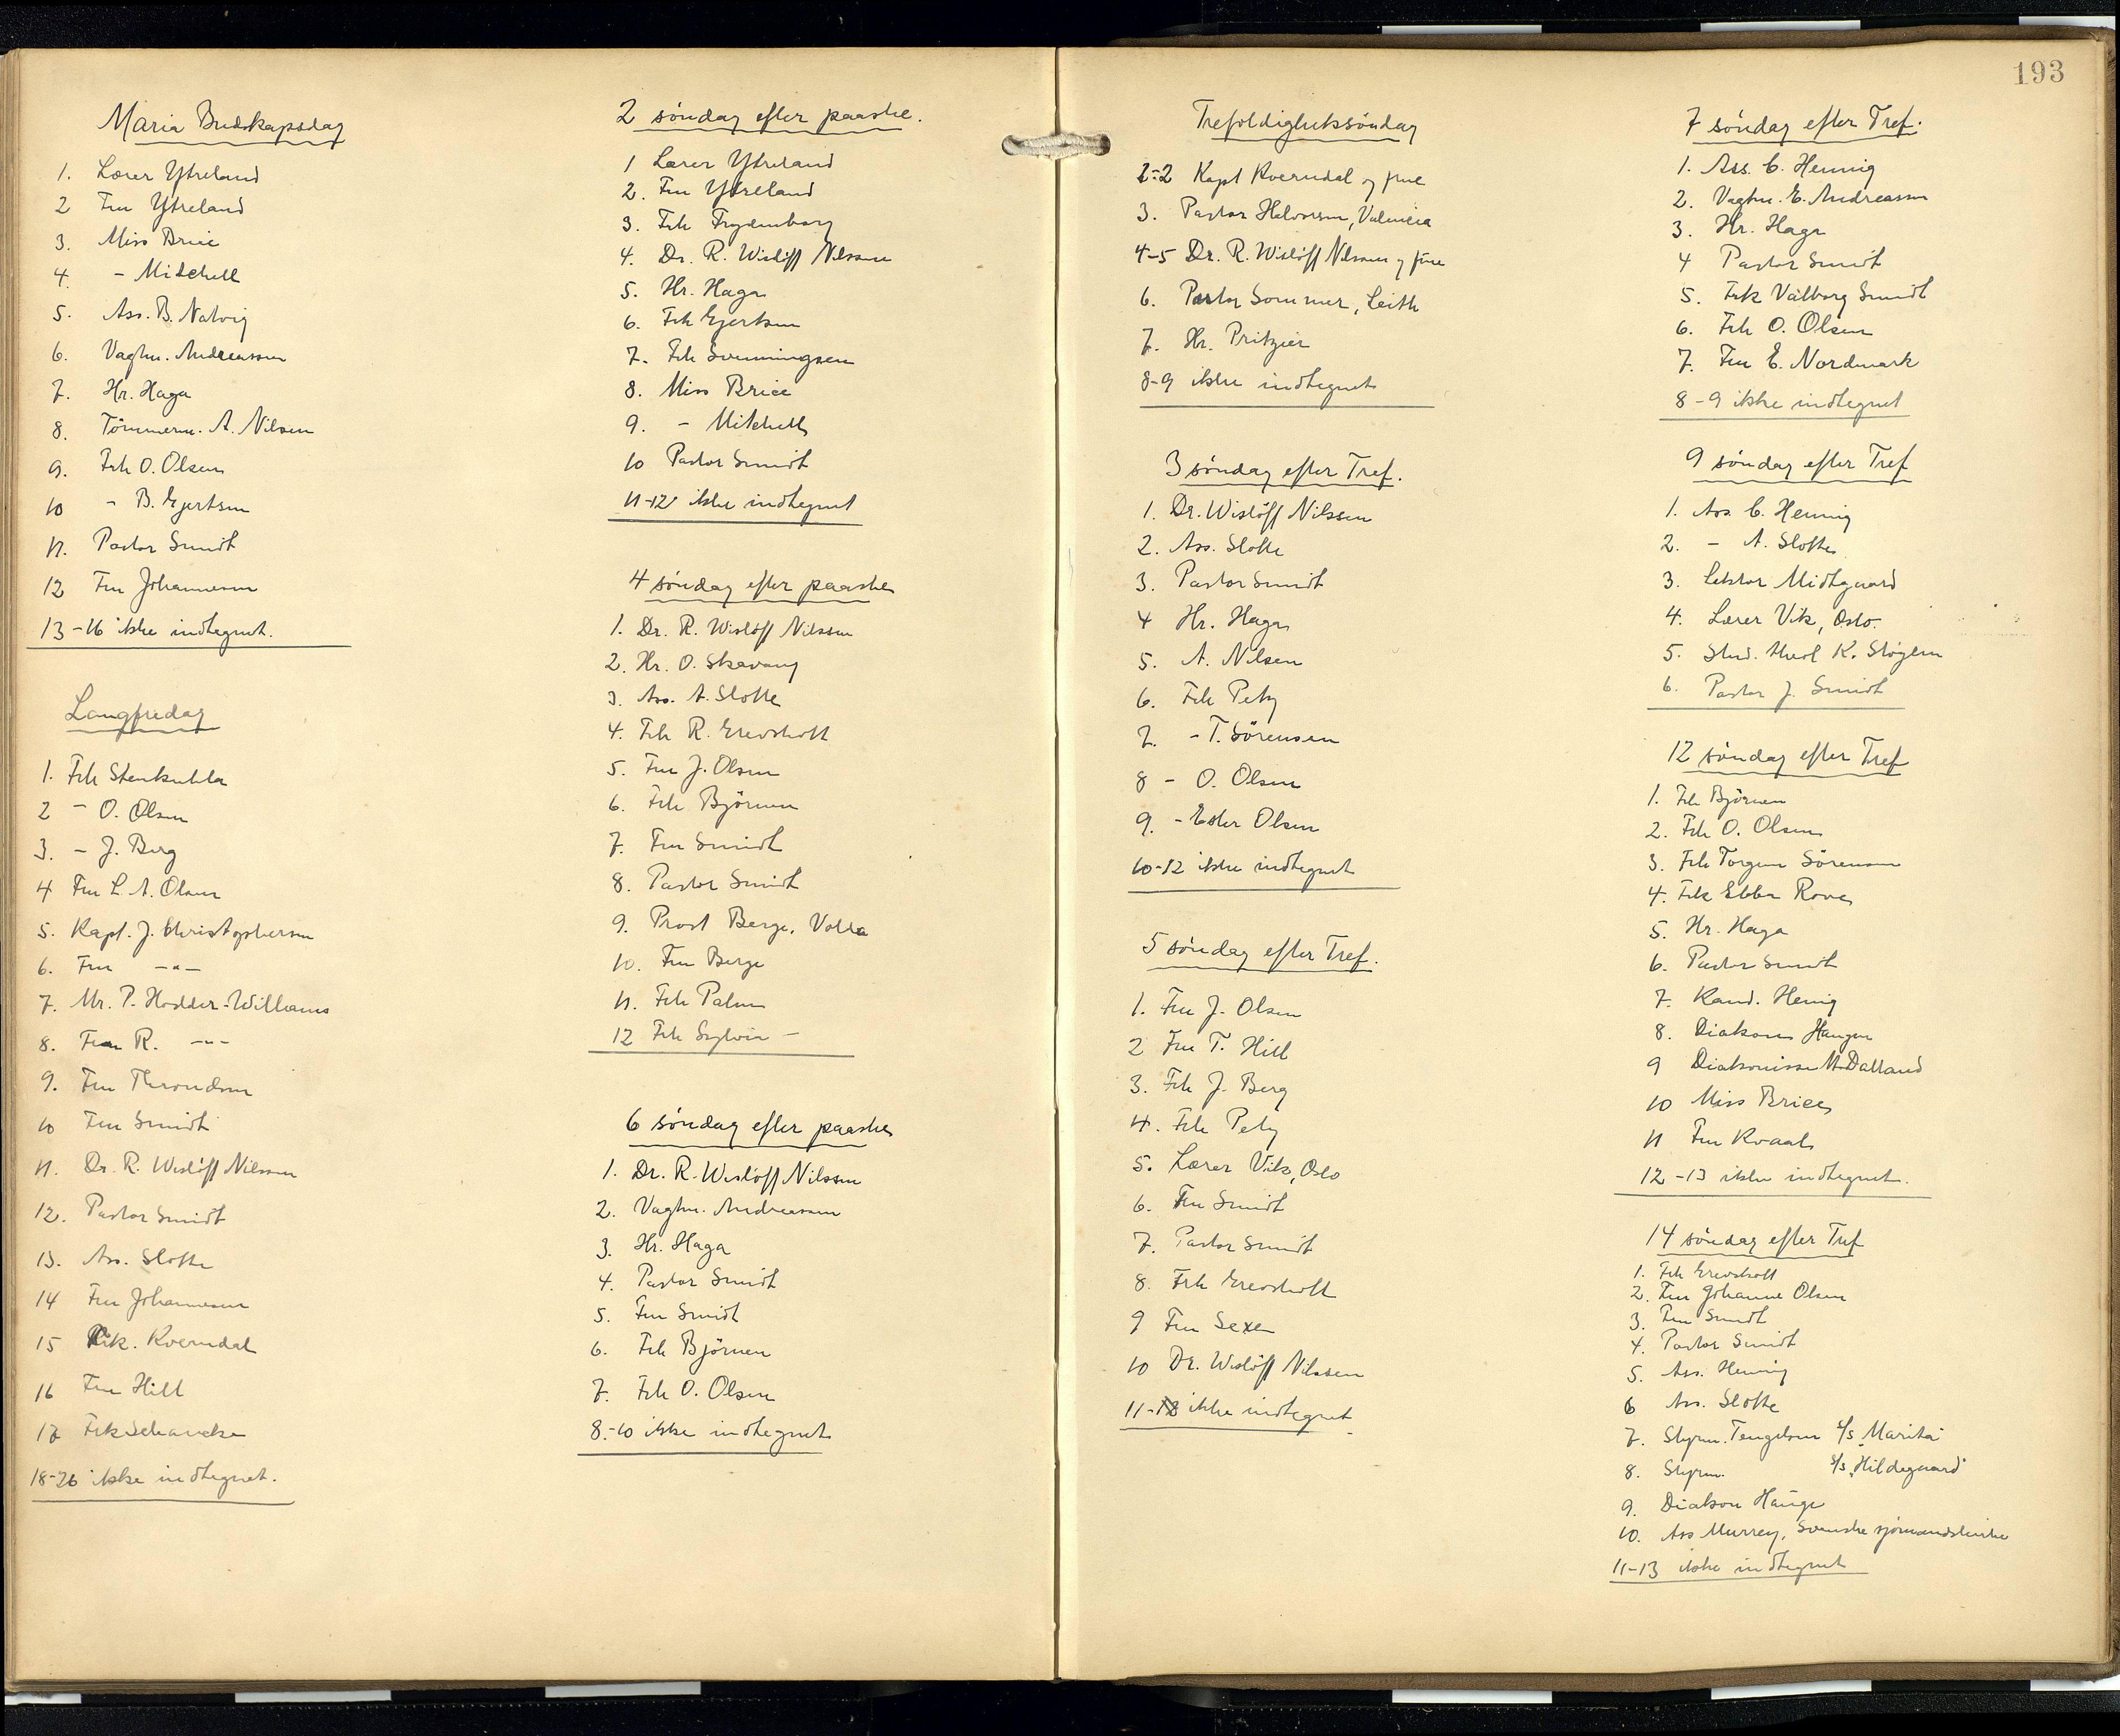 Maria Budskapsdag
1. Lærer Ytreland
2 Fru Ytreland
3. Miss Brice
4. - Mitchell
5. Ass. B. Natvig
6. Vagtm. Andreassen
7. Hr. Haga
8. Tömmerm. A. Nilsen
9. Frk O. Olsen
10 - B. Gjertsen
11. Pastor Smidt
12 Fru Johannesen
13-16 ikke indtegnet.
Langfredag
1. Frk Stenkuhla
2 - O. Olsen
3. - J. Berg
4 Fru L. A. Olsen
5. Kapt. J. Christophersen
6. Fru -"-
7. Mr. P. Hodder-Williams
8. Fru R. -"-
9. Fru Throndsen
10 Fru Smidt
11. Dr. R. Wislöff Nilssen
12. Pastor Smidt
13. Ass. Slotte
14 Fru Johannesen
15 Kverndal
16 Fru Hill
17 Frk Schancke
18-26 ikke indtegnet.
2 söndag efter paaske.
1 Lærer Ytreland
2. Fru Ytreland
3. Frk Frydenborg
4. Dr. R. Wislöff Nilssen
5. Hr. Haga
6. Frk Gjertsen
7. Frk Svenningsen
8. Miss Brice
9. - Mitchell
10 Pastor Smidt
11-12 ikke indtegnet
4 söndag efter paaske
1. Dr. R. Wislöff Nilssen
2. Hr. O. Skavang
3. Ass. A. Slotte
4. Frk R. Grevskott
5. Fru J. Olsen
6. Frk Björnen
7. Fru Smidt
8. Pastor Smidt
9. Prost Berge, Volda
10. Fru Berge
11. Frk Palm
12 Frk Sylvia -
6 söndag efter paaske
1. Dr. R. Wislöff Nilssen
2. Vagtm. Andreassen
3. Hr. Haga
4. Pastor Smidt
5. Fru Smidt
6. Frk Björnen
7. Frk O. Olsen
8.-10 ikke indtegnet
193
Trefoldighetssöndag
1-2 Kapt Kverndal og frue
3. Pastor Halvorsen, Valencia
4-5 Dr. R. Wislöff Nilssen og frue
6. Pastor Sommer, Leith
7. Hr. Pritzier
8-9 ikke indtegnet
3 söndag efter Tref.
1. Dr. Wislöff Nilssen
2. Ass. Slotte
3. Pastor Smidt
4 Hr. Haga
5. A. Nilsen
6. Frk Pety
7. - T. Sörensen
8 - O. Olsen
9. - Ester Olsen
10-12 ikke indtegnet
5 söndag efter Tref.
1. Fru J. Olsen
2 Fru T. Hill
3. Frk J. Berg
4. Frk Pety
5. Lærer Vik, Oslo
6. Fru Smidt
7. Pastor Smidt
8. Frk Grevskott
9 Fru Sexe
10 Dr. Wislöff Nilssen
11- ikke indtegnet
7 söndag efter Tref.
1. Ass. C. Hennig
2. Vagtm. E. Andreassen
3. Hr. Haga
4 Pastor Smidt
5. Frk Valborg Smidt
6. Frk O. Olsen
7. Fru E. Nordmark
8-9 ikke indtegnet
9 söndag efter Tref
1. Ass C. Hennig
2. - A. Slotte
3. Lektor Midtgaard
4. Lærer Vik, Oslo.
5. Stud. theol K. Støylen
6. Pastor J. Smidt
12 söndag efter Tref
1. Frk Björnen
2. Frk O. Olsen
3. Frk Torgun Sörensen
4. Frk Ebba Rove
5. Hr. Haga
6. Pastor Smidt
7. Kand. Henig
8. Diakon Haugen
9 Diakonisse M. Dalland
10 Miss Brice
11 Fru Kvaal
12-13 ikke indtegnet.
14 söndag efter Tref
1. Frk Grevskott
2. Fru Johanne Olsen
3. Fru Smidt
4. Pastor Smidt
5. Ass. Hennig
6 Ass. Slotte
7. Styrm. Tengelsen s/s "Marita"
8. Styrm. s/s "Hildegaard"
9. Diakon Hauge
10. Ass Murrey, Svenske sjömandskirke
11-13 ikke indtegnet